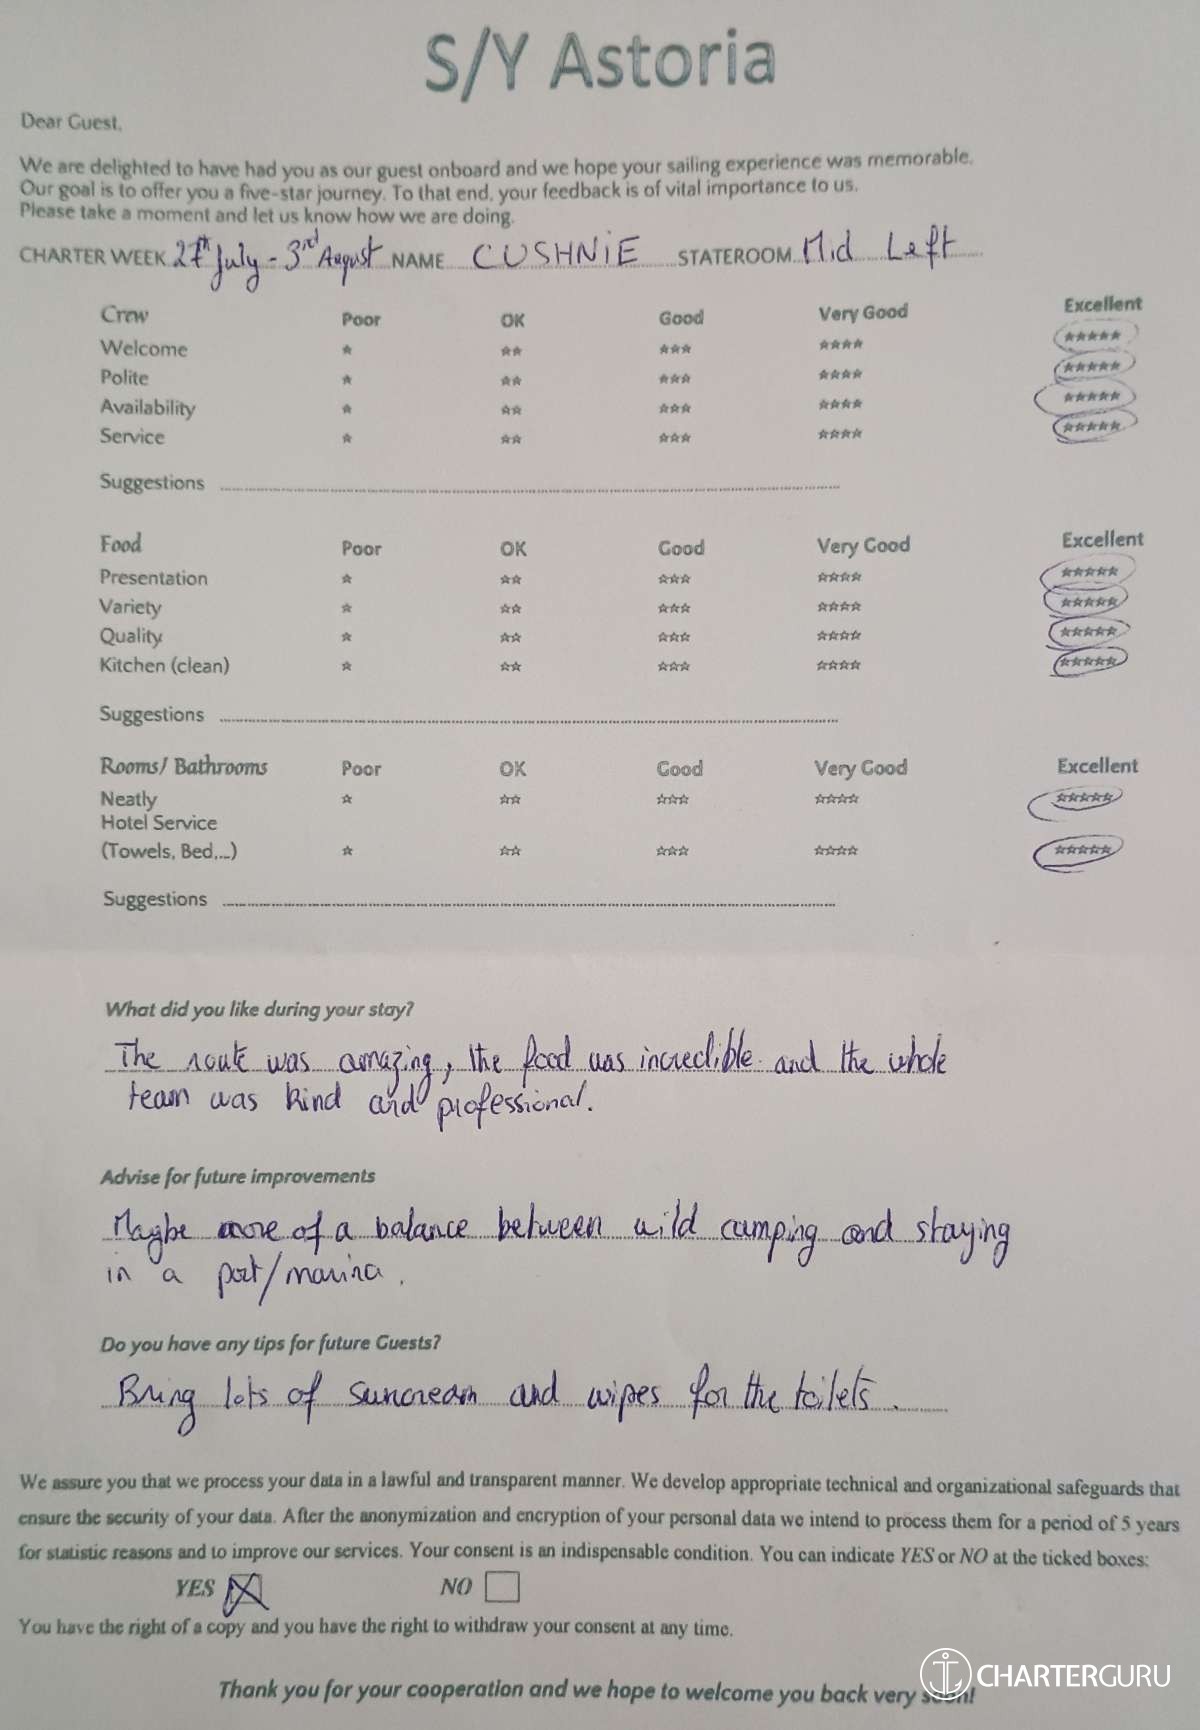 S/Y Astoria
Dear Guest,
We are delighted to have had you as our guest onboard and we hope your sailing experience was memorable.
Our goal is to offer you a five-star journey. To that end, your feedback is of vital importance to us.
Please take a moment and let us know how we are doing.
CHARTER WEEK 27th July - 3rd August NAME CUSHNIE STATEROOM Mid Left
Crew Poor OK Good Very Good Excellent
Welcome ☆ ☆☆ ☆☆☆ ☆☆☆☆ ☆☆☆☆☆
Polite ☆ ☆☆ ☆☆☆ ☆☆☆☆ ☆☆☆☆☆
Availability ☆ ☆☆ ☆☆☆ ☆☆☆☆ ☆☆☆☆☆
Service ☆ ☆☆ ☆☆☆ ☆☆☆☆ ☆☆☆☆☆
Suggestions
Food Poor OK Good Very Good Excellent
Presentation ☆ ☆☆ ☆☆☆ ☆☆☆☆ ☆☆☆☆☆
Variety ☆ ☆☆ ☆☆☆ ☆☆☆☆ ☆☆☆☆☆
Quality ☆ ☆☆ ☆☆☆ ☆☆☆☆ ☆☆☆☆☆
Kitchen (clean) ☆ ☆☆ ☆☆☆ ☆☆☆☆ ☆☆☆☆☆
Suggestions
Rooms/ Bathrooms Poor OK Good Very Good Excellent
Neatly ☆ ☆☆ ☆☆☆ ☆☆☆☆ ☆☆☆☆☆
Hotel Service
(Towels, Bed,...) ☆ ☆☆ ☆☆☆ ☆☆☆☆ ☆☆☆☆☆
Suggestions
What did you like during your stay?
The route was amazing, the food was incredible and the whole
team was kind and professional.
Advise for future improvements
Maybe more of a balance between wild camping and staying
in a port/marina.
Do you have any tips for future Guests?
Bring lots of suncream and wipes for the toilets.
We assure you that we process your data in a lawful and transparent manner. We develop appropriate technical and organizational safeguards that
ensure the security of your data. After the anonymization and encryption of your personal data we intend to process them for a period of 5 years
for statistic reasons and to improve our services. Your consent is an indispensable condition. You can indicate YES or NO at the ticked boxes:
YES NO
You have the right of a copy and you have the right to withdraw your consent at any time.
CHARTERGURU
Thank you for your cooperation and we hope to welcome you back very soon!